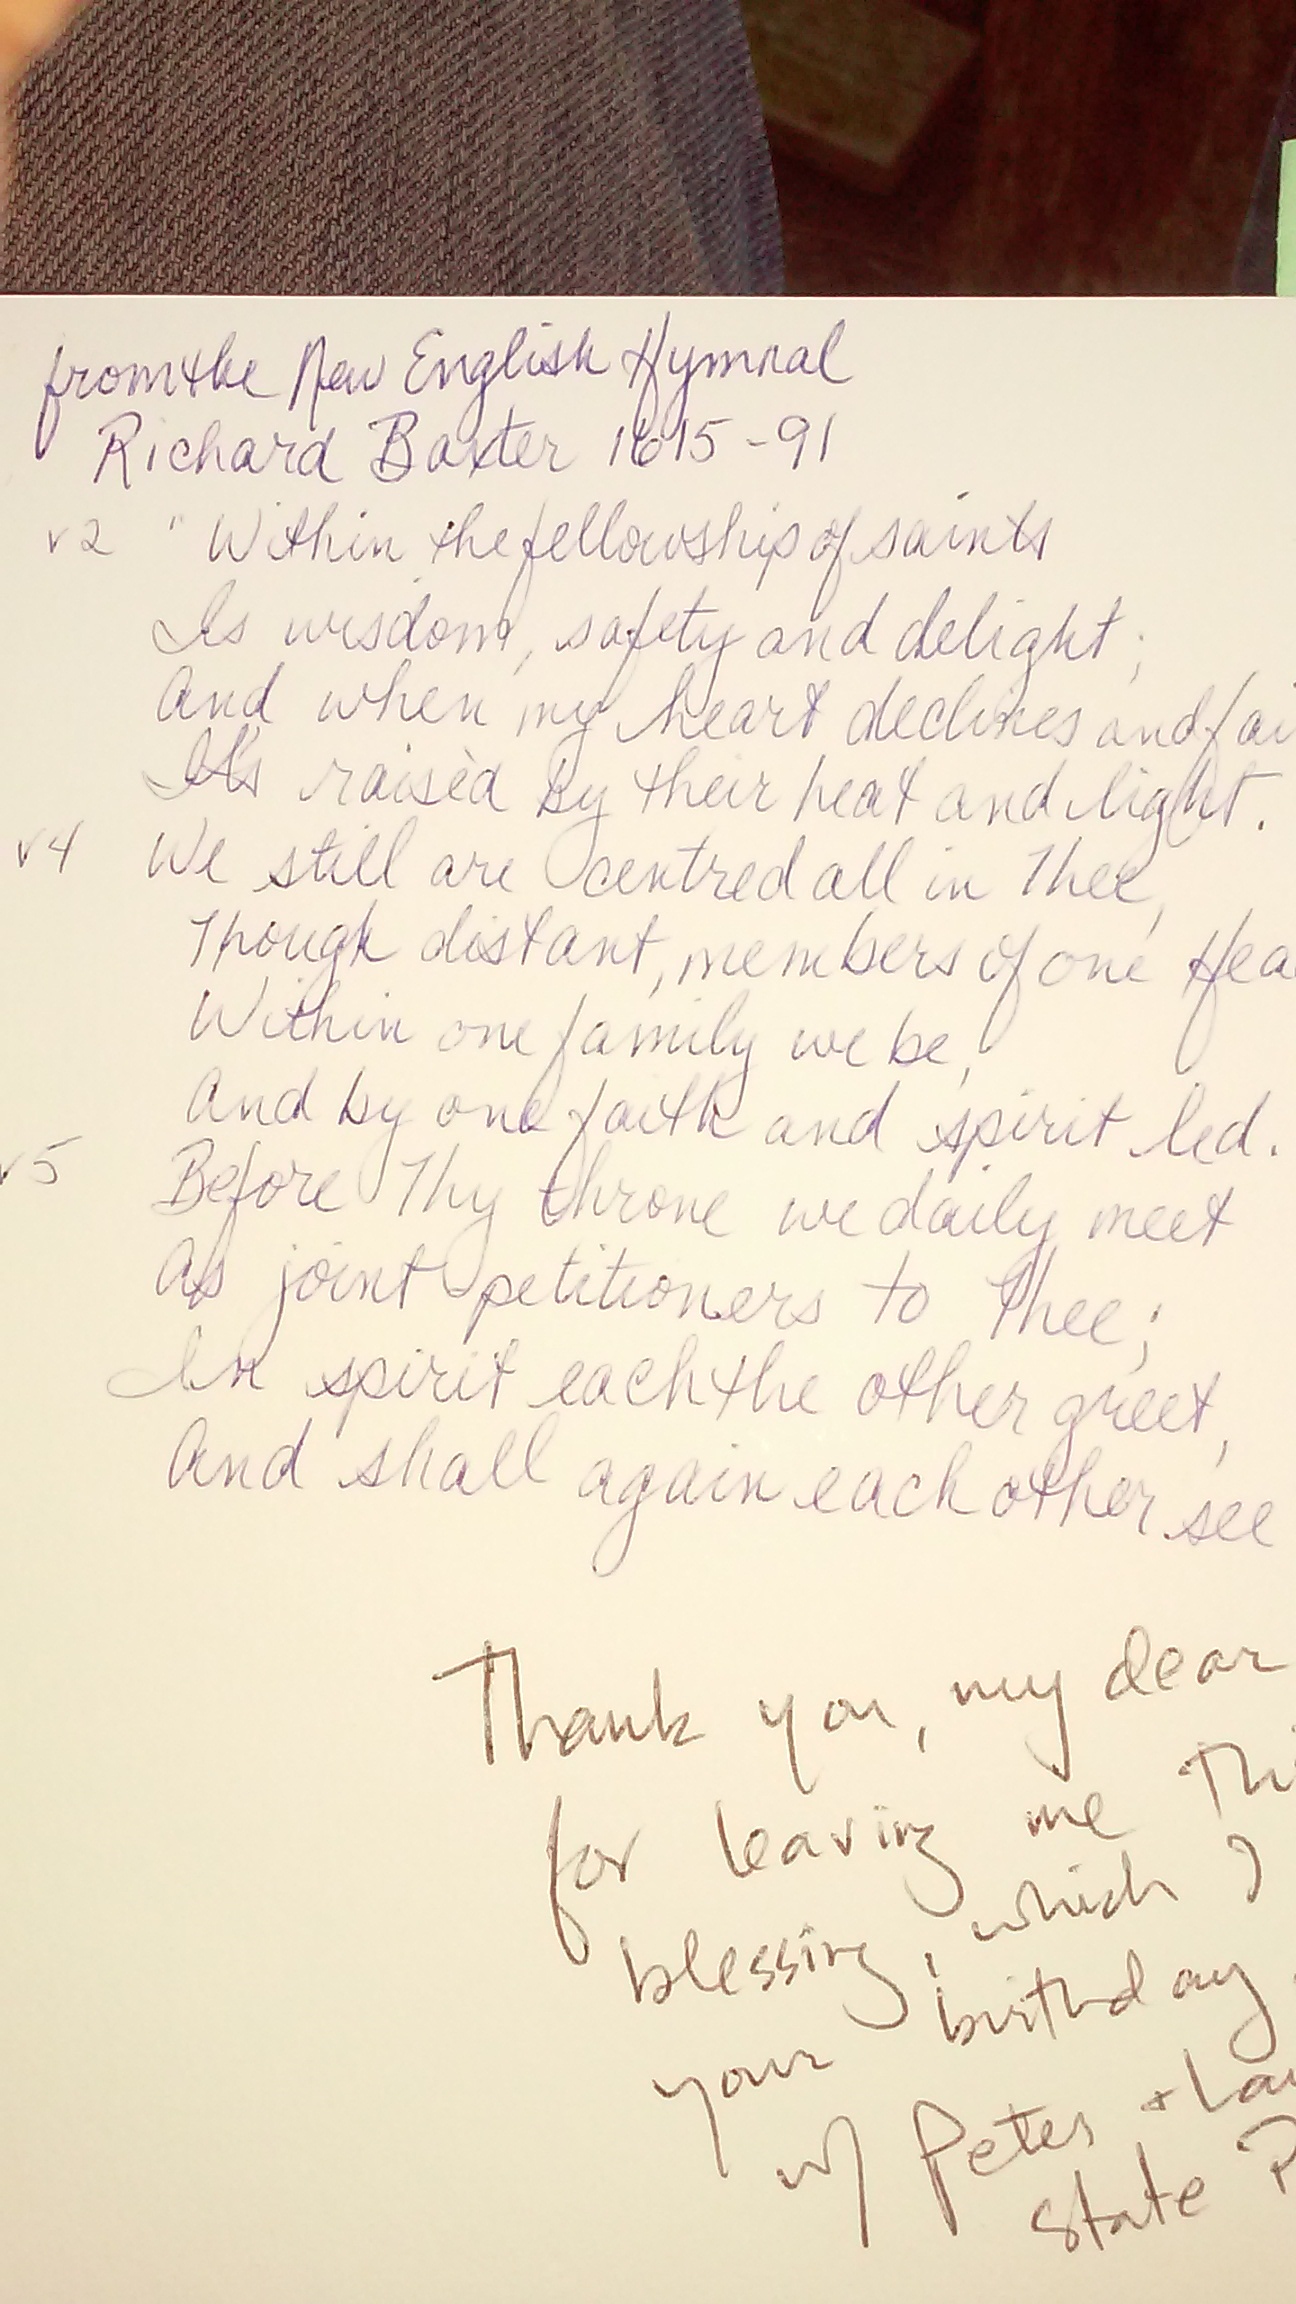 from the New English Hymnal
Richard Baxter 1615-91
v2 "Within the fellowship of saints
Is wisdom, safety and delight;
And when my heart declines and fai
It's raisèd by their heat and light.
v4 We still are centred all in Thee,
Though distant, members of one Hea
Within one family we be,
And by one faith and spirit led.
v5 Before Thy throne we daily meet
As joint petitioners to Thee;
In spirit each the other greet,
And shall again each other see
Thank you, my dear
for leaving me thi
blessing, which I
your birthday
w/ Peter + Lau
state P